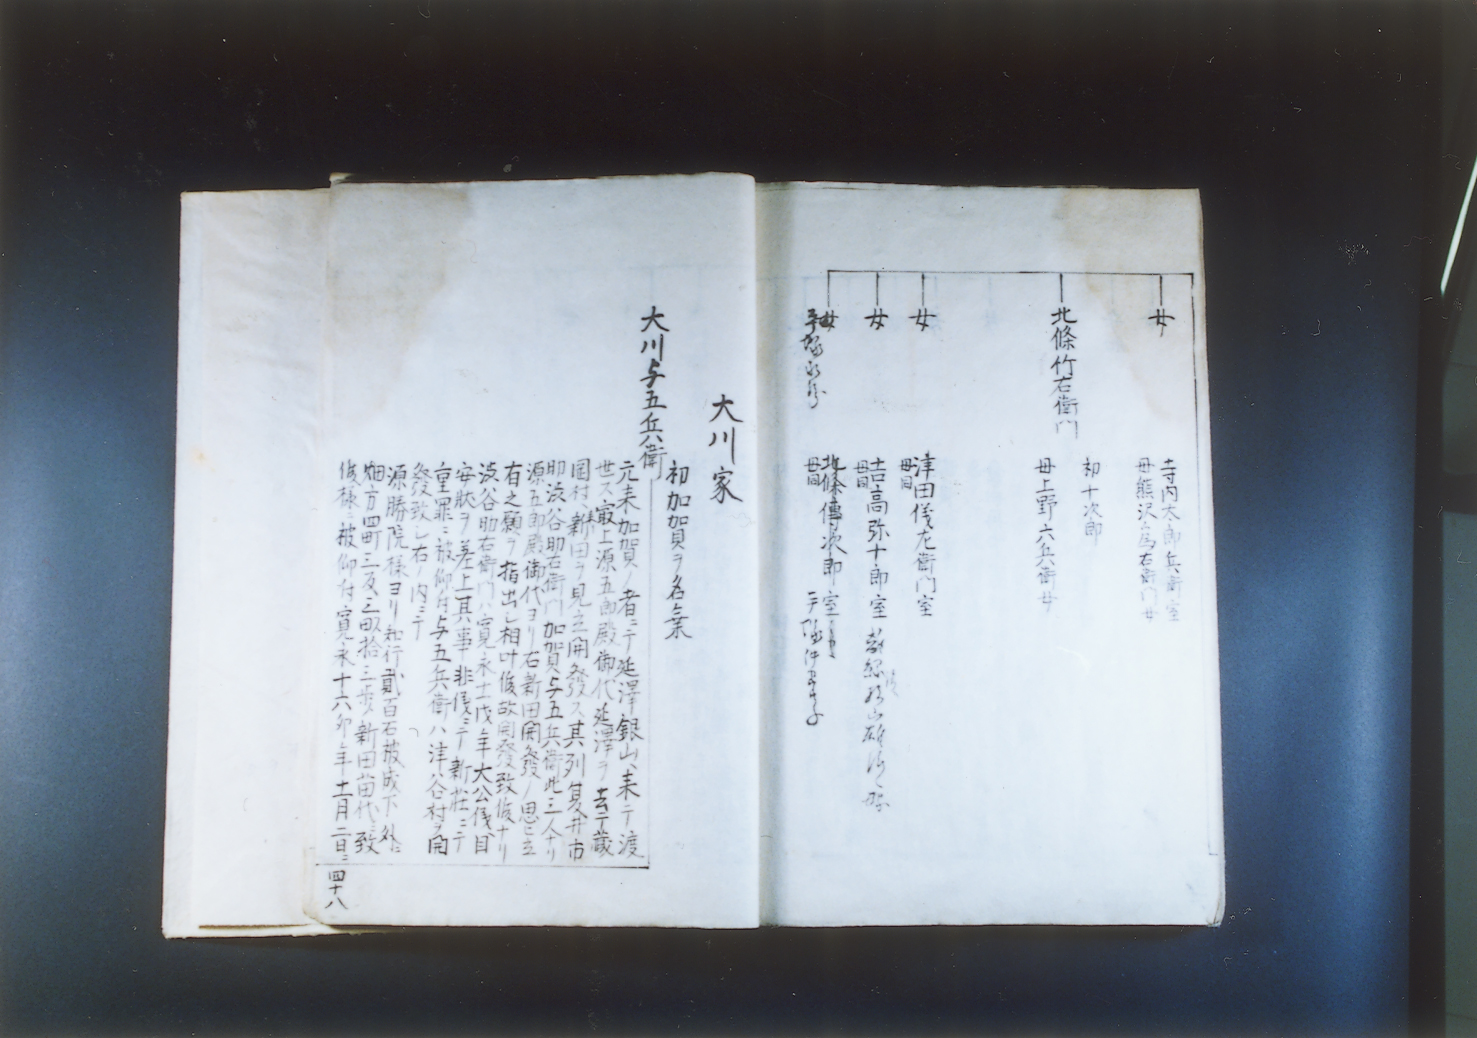 女
寺内太郎兵衛室
母熊沢為右衛門女
北條竹右衛門
初十次郎
母上野六兵衛女
女
津田儀左衛門室
母同
女
吉高弥十郎室
母同
女
北條傳次郎室
母同
大川家
大川与五兵衛
初加賀ヲ名乗
元来加賀ノ者ニテ延澤銀山ヘ来テ渡
世ス最上源五郎殿御代延澤ヲ去テ蔵
岡村ヘ新田ヲ見立開發ス其列夏井市
助渋谷助右衛門加賀与五兵衛此三人ナリ
源五郎殿御代ヨリ右新田開發ノ思ヒ立
有之願ヲ指出シ相叶候故開發致候ナリ
渋谷助右衛門ハ寛永十一戌年大公儀目
安状ヲ差上其事非儀ニテ新庄ニテ
重罪ニ被仰付与五兵衛ハ津谷村ヲ開
發致シ右ノ内ニテ
源勝院様ヨリ知行貳百石被成下外ニ
畑方四町三反三畝拾三歩新田苗代ニ致
候様ニ被仰付寛永十六卯年十一月二日ニ
四十八